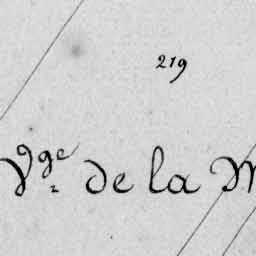 219
Vge de la M